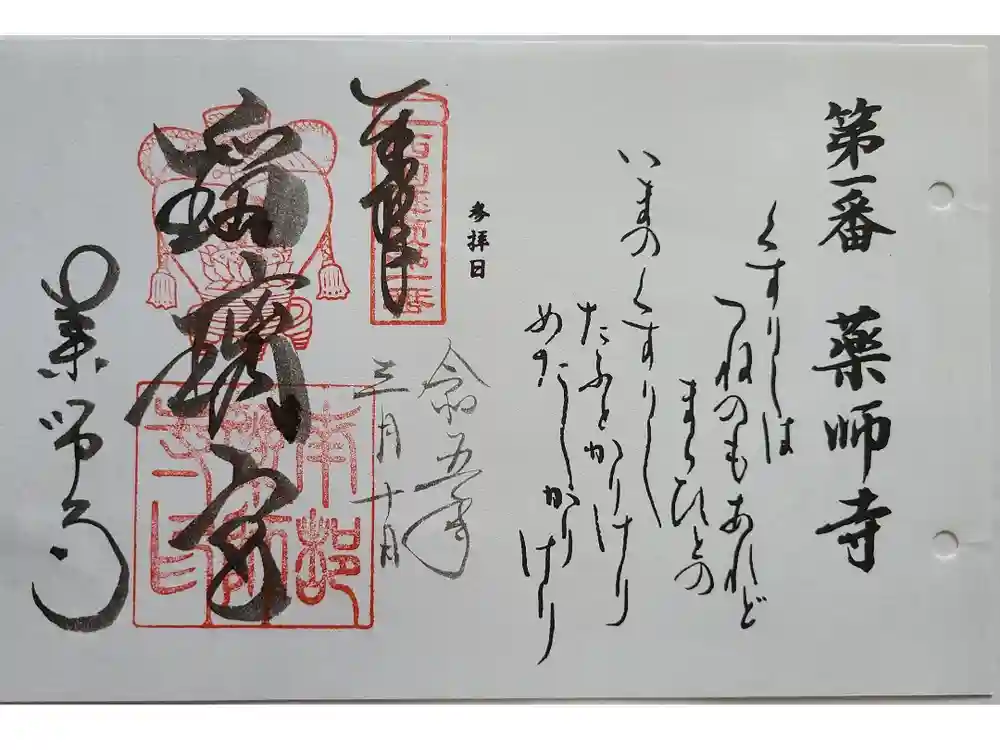 第一番 薬師寺
くすりしは
つねのもあれど
まらひとの
いまのくすりし
たふとかりけり
めだしかりけり
参拝日
令和五年
三月十日
奉拝
瑠璃宮
薬師寺
南都
薬師
寺印